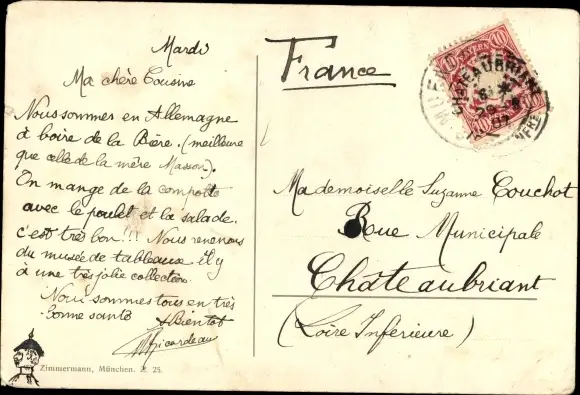 Mardi
Ma chère Cousine
Nous sommes en Allemagne
à boire de la Bière. (meilleure
que celle de la mère Masson).
On mange de la compotte
avec le poulet et la salade.
c'est très bon!!! Nous revenons
du musée de tableaux il y
à une très jolie collection.
Nous sommes tous en très
bonne santé
A Bientot
Ricardeau
Zimmermann, München. 25.
France
10 BAYERN 10
CHATEAUBRIANT
Mademoiselle Suzanne Couchot
Rue Municipale
Châteaubriant
(Loire Inférieure)